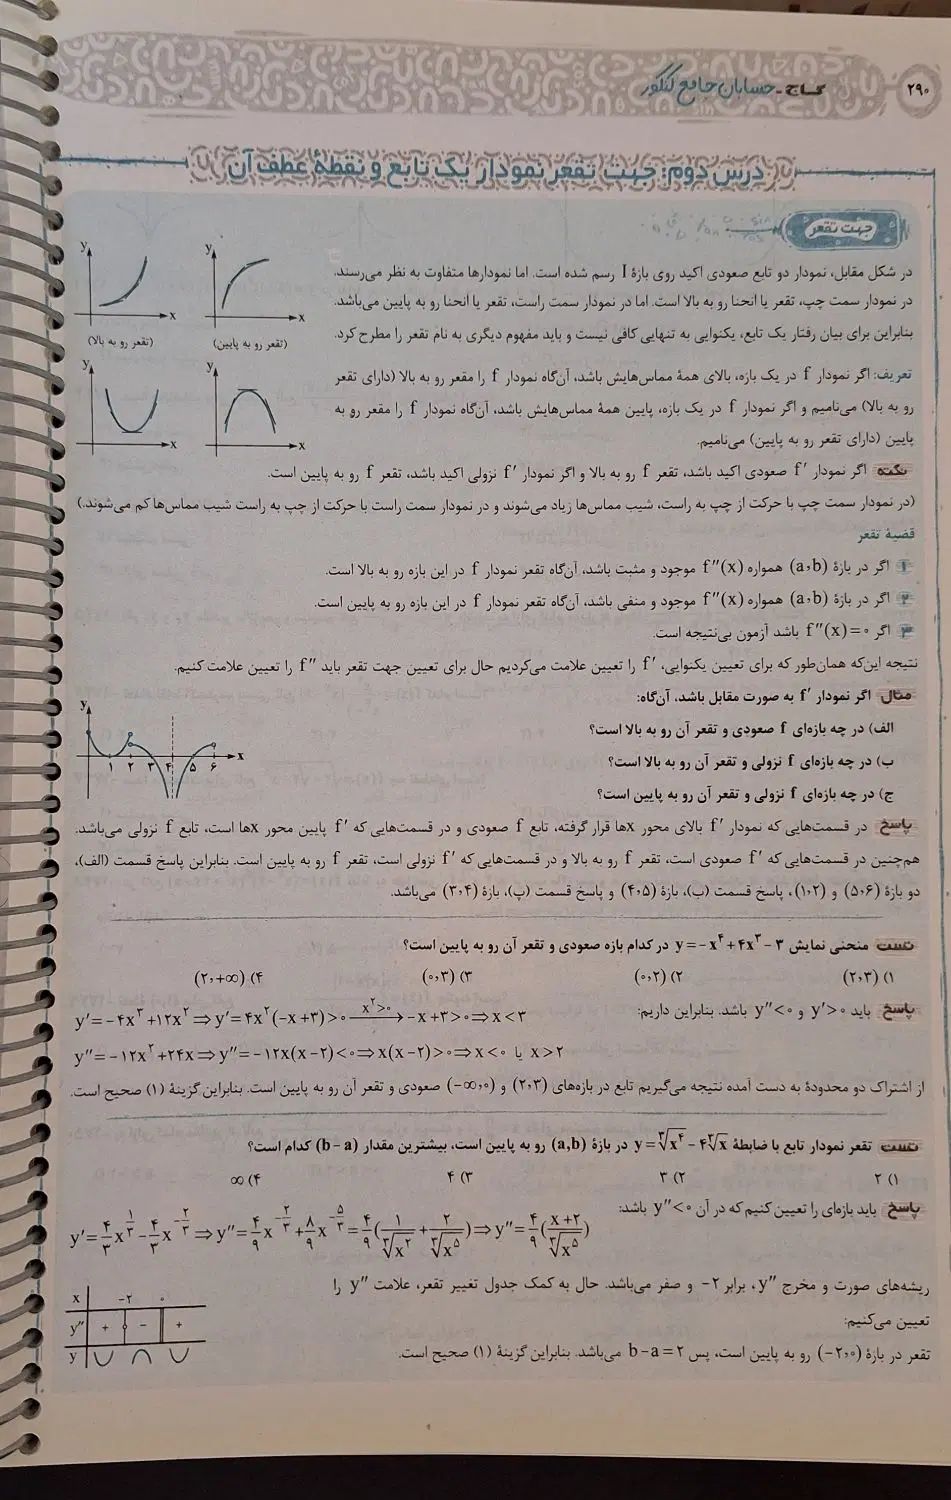 ۲۹۰
گاج - حسابان جامع کنکور
درس دوم: جهت تقعر نمودار یک تابع و نقطهٔ عطف آن
جهت تقعر
در شکل مقابل، نمودار دو تابع صعودی اکید روی بازهٔ I رسم شده است. اما نمودارها متفاوت به نظر می‌رسند.
در نمودار سمت چپ، تقعر یا انحنا رو به بالا است. اما در نمودار سمت راست، تقعر یا انحنا رو به پایین می‌باشد.
بنابراین برای بیان رفتار یک تابع، یکنوایی به تنهایی کافی نیست و باید مفهوم دیگری به نام تقعر را مطرح کرد.
y x y x
(تقعر رو به بالا) (تقعر رو به پایین)
y x y x
تعریف: اگر نمودار f در یک بازه، بالای همهٔ مماس‌هایش باشد، آن‌گاه نمودار f را مقعر رو به بالا (دارای تقعر
رو به بالا) می‌نامیم و اگر نمودار f در یک بازه، پایین همهٔ مماس‌هایش باشد، آن‌گاه نمودار f را مقعر رو به
پایین (دارای تقعر رو به پایین) می‌نامیم.
نکته اگر نمودار f′ صعودی اکید باشد، تقعر f رو به بالا و اگر نمودار f′ نزولی اکید باشد، تقعر f رو به پایین است.
(در نمودار سمت چپ با حرکت از چپ به راست، شیب مماس‌ها زیاد می‌شوند و در نمودار سمت راست با حرکت از چپ به راست شیب مماس‌ها کم می‌شوند.)
قضیهٔ تقعر
۱ اگر در بازهٔ (a,b) همواره f″(x) موجود و مثبت باشد، آن‌گاه تقعر نمودار f در این بازه رو به بالا است.
۲ اگر در بازهٔ (a,b) همواره f″(x) موجود و منفی باشد، آن‌گاه تقعر نمودار f در این بازه رو به پایین است.
۳ اگر f″(x)=۰ باشد آزمون بی‌نتیجه است.
نتیجه این‌که همان‌طور که برای تعیین یکنوایی، f′ را تعیین علامت می‌کردیم حال برای تعیین جهت تقعر باید f″ را تعیین علامت کنیم.
مثال اگر نمودار f′ به صورت مقابل باشد، آن‌گاه:
الف) در چه بازه‌ای f صعودی و تقعر آن رو به بالا است؟
ب) در چه بازه‌ای f نزولی و تقعر آن رو به بالا است؟
ج) در چه بازه‌ای f نزولی و تقعر آن رو به پایین است؟
y ۱ ۲ ۳ ۴ ۵ ۶ x
پاسخ در قسمت‌هایی که نمودار f′ بالای محور xها قرار گرفته، تابع f صعودی و در قسمت‌هایی که f′ پایین محور xها است، تابع f نزولی می‌باشد.
هم‌چنین در قسمت‌هایی که f′ صعودی است، تقعر f رو به بالا و در قسمت‌هایی که f′ نزولی است، تقعر f رو به پایین است. بنابراین پاسخ قسمت (الف)،
دو بازهٔ (۵,۶) و (۱,۲)، پاسخ قسمت (ب)، بازهٔ (۴,۵) و پاسخ قسمت (پ)، بازهٔ (۳,۴) می‌باشد.
تست منحنی نمایش y=−x⁴+۴x³−۳ در کدام بازه صعودی و تقعر آن رو به پایین است؟
۱) (۲,۳) ۲) (۰,۲) ۳) (۰,۳) ۴) (۲,+∞)
پاسخ باید y′>۰ و y″<۰ باشد. بنابراین داریم: y′=−۴x³+۱۲x²⇒y′=۴x²(−x+۳)>۰ —x²>۰→ −x+۳>۰⇒x<۳
y″=−۱۲x²+۲۴x⇒y″=−۱۲x(x−۲)<۰⇒x(x−۲)>۰⇒x<۰ یا x>۲
از اشتراک دو محدودهٔ به دست آمده نتیجه می‌گیریم تابع در بازه‌های (۲,۳) و (−∞,۰) صعودی و تقعر آن رو به پایین است. بنابراین گزینهٔ (۱) صحیح است.
تست تقعر نمودار تابع با ضابطهٔ y=∛x⁴−۴∛x در بازهٔ (a,b) رو به پایین است، بیشترین مقدار (b−a) کدام است؟
۱) ۲ ۲) ۳ ۳) ۴ ۴) ∞
پاسخ باید بازه‌ای را تعیین کنیم که در آن y″<۰ باشد:
y′=۴/۳ x^(۱/۳)−۴/۳ x^(−۲/۳)⇒y″=۴/۹ x^(−۲/۳)+۸/۹ x^(−۵/۳)=۴/۹(۱/∛x²+۲/∛x⁵)⇒y″=۴/۹((x+۲)/∛x⁵)
ریشه‌های صورت و مخرج y″، برابر ۲− و صفر می‌باشد. حال به کمک جدول تغییر تقعر، علامت y″ را
تعیین می‌کنیم:
x −۲ ۰
y″ + ۰ − +
y
تقعر در بازهٔ (−۲,۰) رو به پایین است، پس b−a=۲ می‌باشد. بنابراین گزینهٔ (۱) صحیح است.